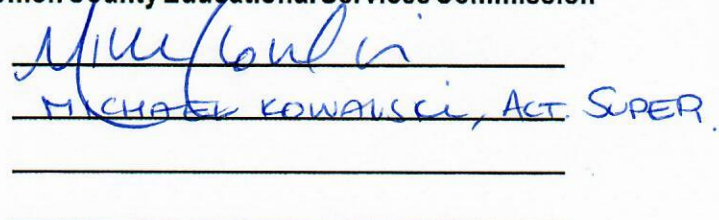 County Educational Services Commission
MICHAEL KOWALSKI, ACT. SUPER.